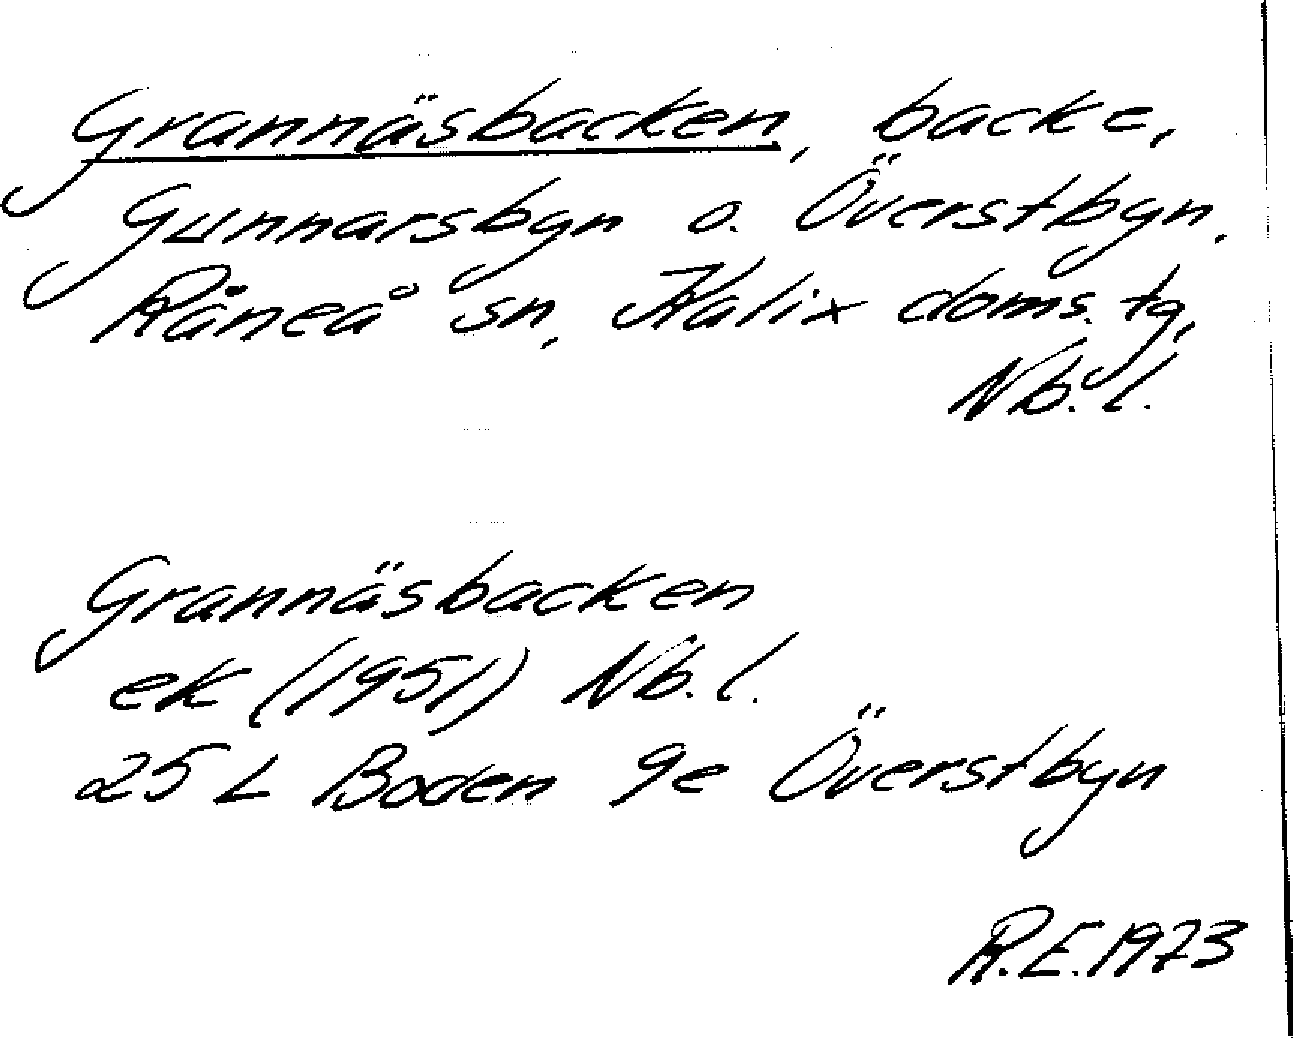 Grannäsbacken, backe,
Gunnarsbyn o. Överstbyn,
Råneå sn, Kalix doms. tg,
Nb. l.
Grannäsbacken
ek (1951) Nb. l.
25 L Boden 9e Överstbyn
R.E. 1973